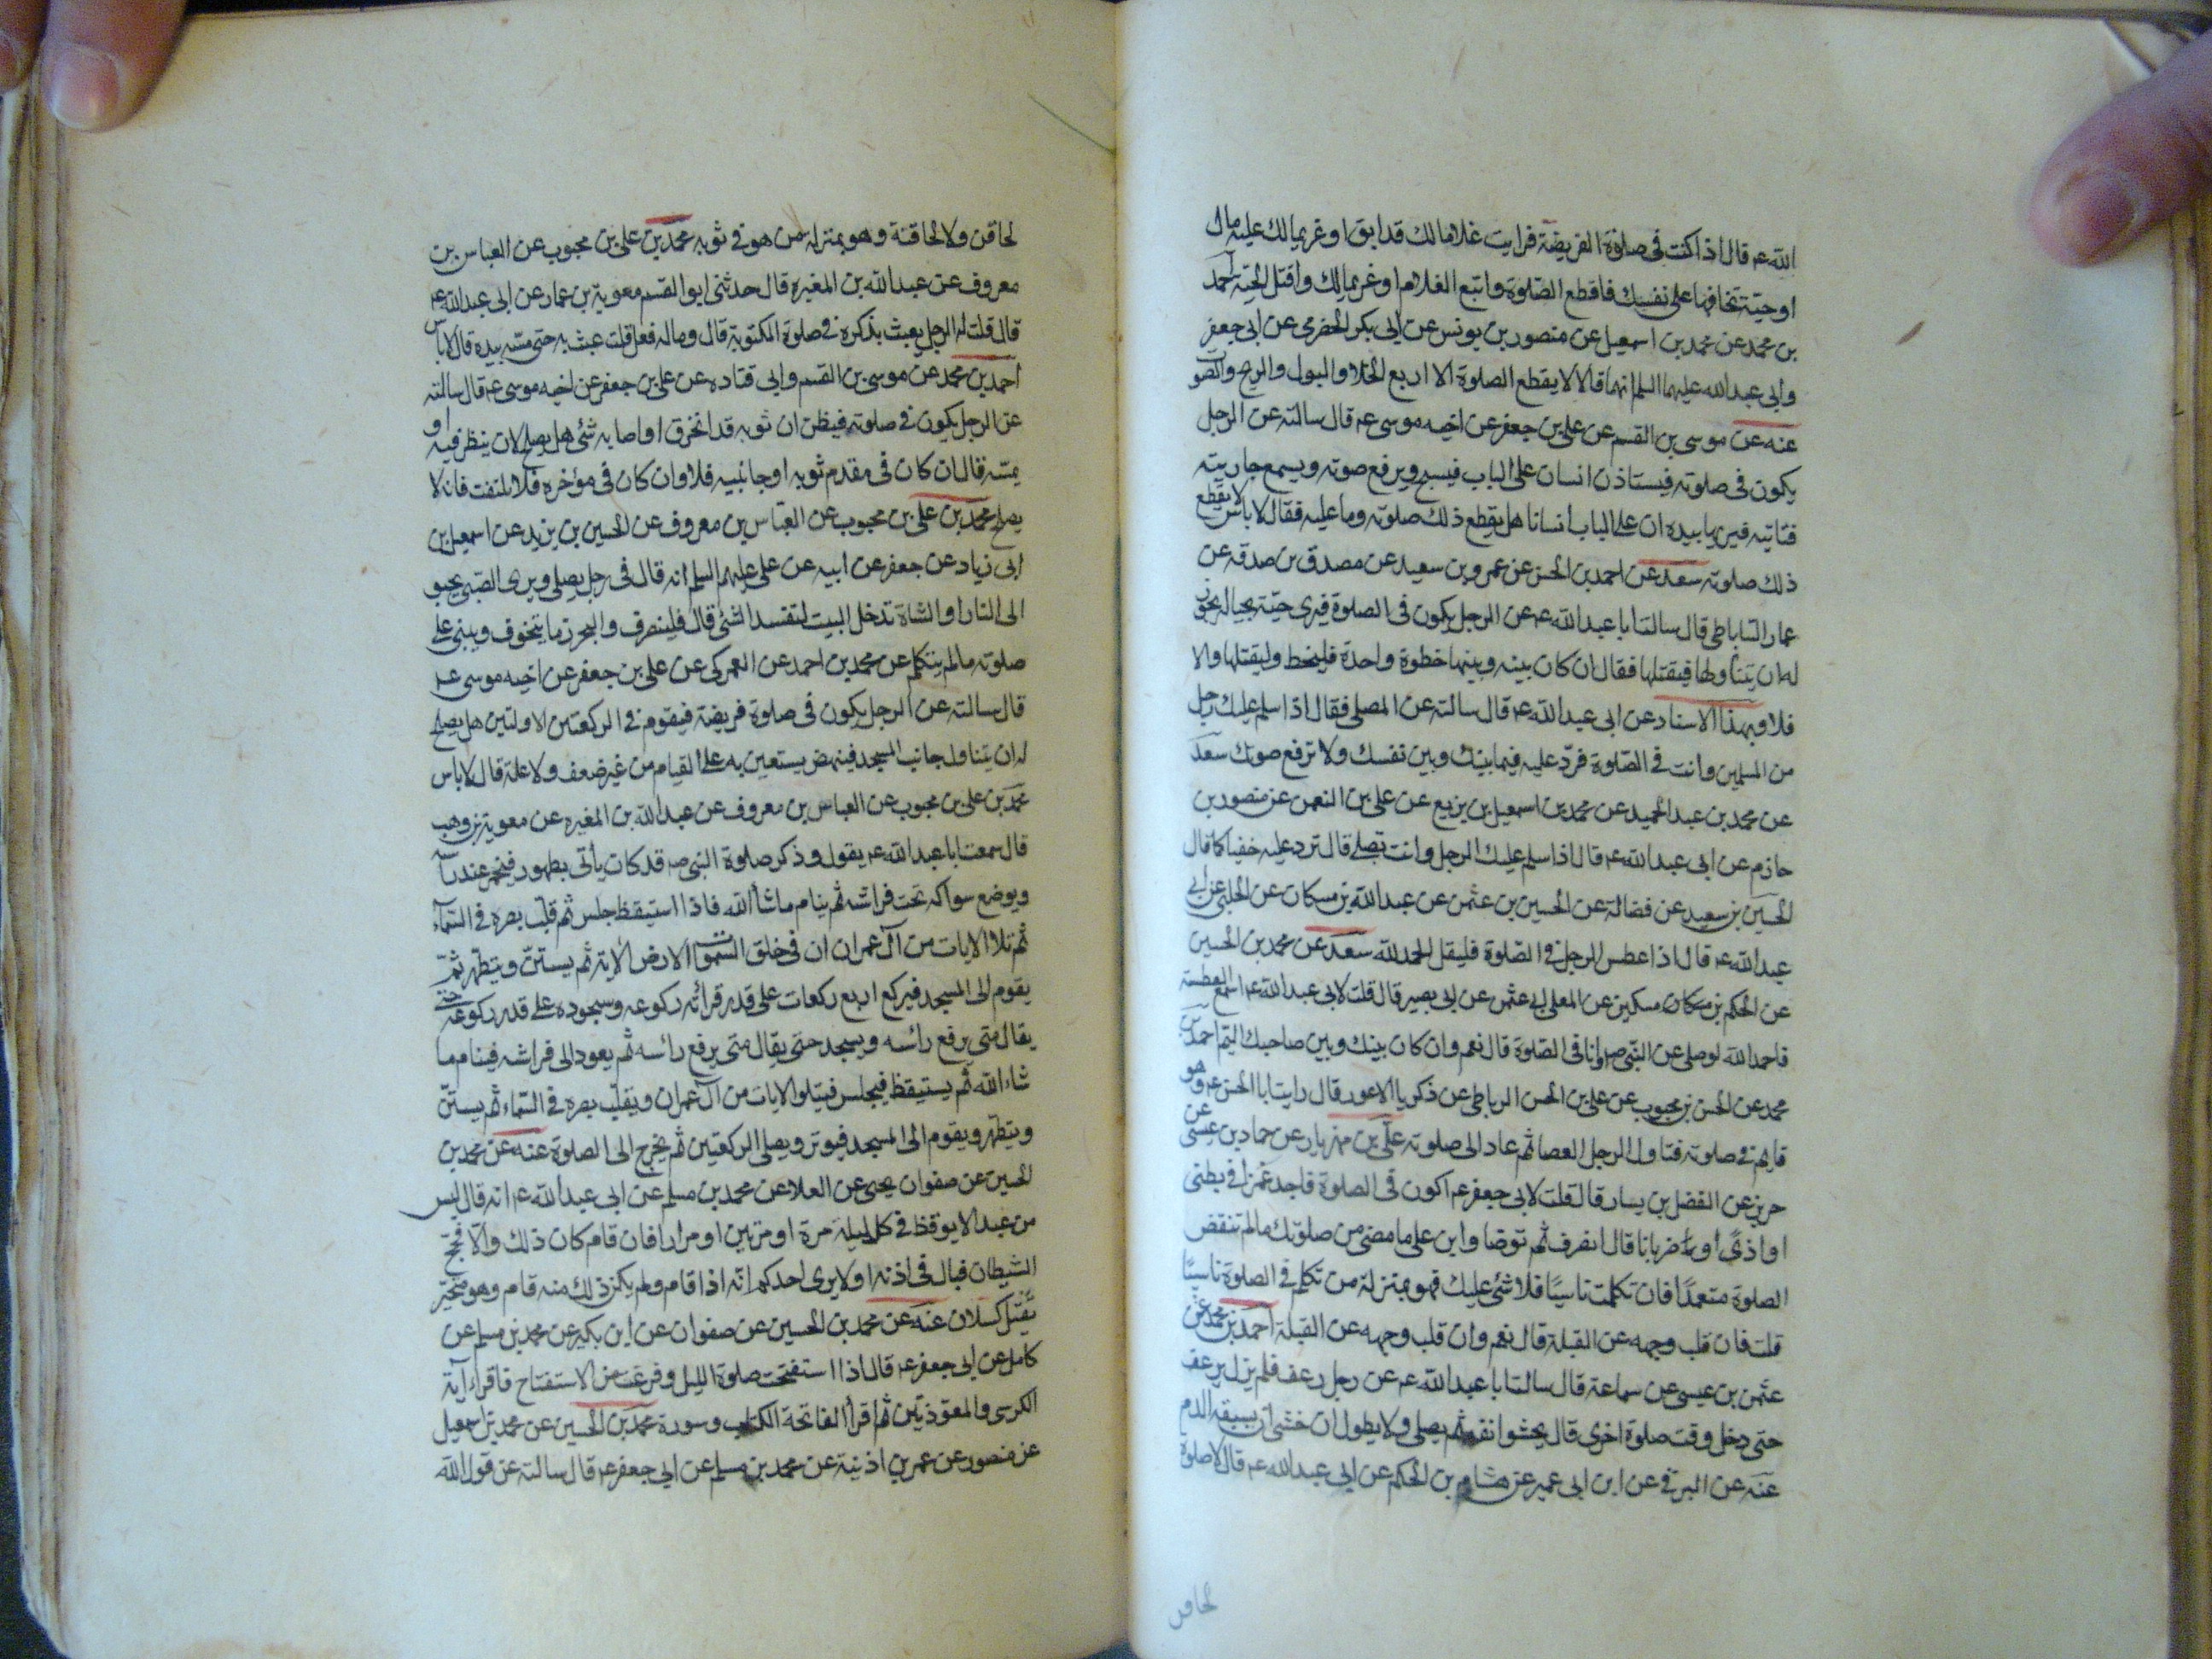 الله ع‍ قال اذا كنت فى صلوة الفريضة فرايت غلاما لك قد ابق او غريما لك عليه مال
او حية تخافها على نفسك فاقطع الصّلوة واتبع الغلام او غريما لك واقتل الحيّة احمد
بن محمد عن محمد بن اسمعيل عن منصور بن يونس عن ابى بكر الحضرمى عن ابى جعفر
وابى عبد الله عليهما السلم انهما قالا لا يقطع الصلوة الا اربع الخلا والبول والريح والصوت
عنه عن موسى بن القسم عن على بن جعفر عن اخيه موسى ع‍ قال سالته عن الرجل
يكون فى صلوته فيستاذن انسان على الباب فيسبح ويرفع صوته ويسمع جاريته
فتاتيه فيريها بيده ان على الباب انسانا هل يقطع ذلك صلوته وما عليه فقال لا باس لا يقطع
ذلك صلوته سعد عن احمد بن الحسن عن عمرو بن سعيد عن مصدق بن صدقه عن
عمار الساباطى قال سالت ابا عبد الله ع‍ عن الرجل يكون فى الصلوة فيرى حيّة بحياله يجوز
له ان يتناولها فيقتلها فقال ان كان بينه وبينها خطوة واحدة فليخط وليقتلها والا
فلا وبهذا الاسناد عن ابى عبد الله ع‍ قال سالته عن المصلى فقال اذا سلم عليك رجل
من المسلمين وانت فى الصّلوة فردّ عليه فيما بينك وبين نفسك ولا ترفع صوتك سعد
عن محمد بن عبد الحميد عن محمد بن اسمعيل بن بزيع عن على بن النعمن عن منصور بن
حازم عن ابى عبد الله ع‍ قال اذا سلم عليك الرجل وانت تصلى قال ترد عليه خفيا كما قال
الحسين بن سعيد عن فضالة عن الحسين بن عثمن عن عبد الله بن مسكان عن الحلبى عن ابى
عبد الله ع‍ قال اذا عطس الرجل فى الصّلوة فليقل الحمد لله سعد عن محمد بن الحسين
عن الحكم بن مسكين عن المعلى ابى عثمن عن ابى بصير قال قلت لابى عبد الله ع‍ اسمع العطسة
فاحمد الله واصلى عن النّبى ص‍ وانا فى الصّلوة قال نعم وان كان بينك وبين صاحبك اليّم احمد بن
محمد عن الحسن بن محبوب عن على بن الحسن الرباطى عن زكريا الاعور قال رايت ابا الحسن ع‍ وهو
قايم فى صلوته فتناول الرجل العصا ثم عاد الى صلوته على بن مهزيار عن حماد بن عيسى عن
حريز عن الفضل بن يسار قال قلت لابى جعفر ع‍ اكون فى الصلوة فاجد غمزا فى بطنى
او اذىً او ضربانا قال انصرف ثم توضا وابن على ما مضى من صلوتك مالم تنقض
الصلوة متعمدًا فان تكلمت ناسيًا فلا شئ عليك فهو بمنزلة من تكلم فى الصلوة ناسيًا
قلت فان قلب وجهه عن القبلة قال نعم وان قلب وجهه عن القبلة احمد بن محمد عن
عثمن بن عيسى عن سماعة قال سالت ابا عبد الله ع‍ عن رجل رعف فلم يزل يرعف
حتى دخل وقت صلوة اخرى قال يحشو انفه ثم يصلى ولا يطول ان خشى ان يسبقه الدم
عنه عن البرقى عن ابن ابى عمير عن هشام بن الحكم عن ابى عبد الله ع‍ قال لا صلوة
لحاقن
لحاقن ولا لحاقنة وهو بمنزلة من هو فى ثوبه محمد بن على بن محبوب عن العباس بن
معروف عن عبد الله بن المغيره قال حدثنى ابو القسم معوية بن عمار عن ابى عبد الله ع‍
قال قلت له الرجل يعبث بذكره فى صلوة المكتوبة قال وماله فعل قلت عبث به حتى مسّه بيده قال لا باس
احمد بن محمد عن موسى بن القسم وابى قتاده عن على بن جعفر عن اخيه موسى ع‍ قال سالته
عن الرجل يكون فى صلوته فيظن ان ثوبه قد انخرق او اصابه شئ هل يصلح لان ينظر فيه او
يمسّه قال ان كان فى مقدم ثوبه او جانبيه فلا وان كان فى مؤخره فلا يلتفت فانه لا
يصلح محمد بن على بن محبوب عن العبّاس بن معروف عن الحسين بن يزيد عن اسمعيل بن
ابى زياد عن جعفر عن ابيه عن على عليهم السلم انه قال فى رجل يصلى ويرى الصّبى يحبو
الى النار او الشاة تدخل البيت لتفسد الشئ قال فلينصرف وليحرز ما يتخوف ويبنى على
صلوته مالم يتكلم عن محمد بن احمد عن العمركى عن على بن جعفر عن اخيه موسى ع‍
قال سالته عن الرجل يكون فى صلوة فريضة فيقوم فى الركعتين الاولتين هل يصلح
له ان يتناول جانب المسجد فينهض يستعين به على القيام من غير ضعف ولا علة قال لا باس
محمد بن على بن محبوب عن العباس بن معروف عن عبد الله بن المغيره عن معوية بن وهب
قال سمعت ابا عبد الله ع‍ يقول وذكر صلوة النبى ص‍ قد كان يأتى بطهور فيخمر عند راسه
ويوضع سواكه تحت فراشه ثم ينام ماشأ الله فاذا استيقظ جلس ثم قلب بصره فى السّمآء
ثم تلا الايات من آل عمران ان فى خلق السّموات والارض الآية ثم يستنّ ويتطهر ثمّ
يقوم الى المسجد فيركع اربع ركعات على قدر قرائه ركوعه وسجوده على قدر ركوعه حتى
يقال متى يرفع رائسه ويسجد حتى يقال متى يرفع رائسه ثم يعود الى فراشه فينام ما
شاء الله ثم يستيقظ فيجلس فيتلو الايات من آل عمران ويقلب بصره فى السّماء ثم يستنّ
ويتطهر ويقوم الى المسجد فيوتر ويصلى الركعتين ثم يخرج الى الصلوة عنه عن محمد بن
الحسين عن صفوان يحيى عن العلا عن محمد بن مسلم عن ابى عبد الله ع‍ انه قال ليس
من عبد الا يوقظ فى كل ليلة مرة او مرتين او مرارا فان قام كان ذلك والا فحج
الشيطان فبال فى اذنه او لا يرى احدكم انّه اذا قام ولم يكن ذلك منه قام وهو متخثر
ثقيل كسلان عنه عن محمد بن الحسين عن صفوان عن ابن بكير عن محمد بن مسلم عن
كامل عن ابى جعفر ع‍ قال اذا استفتحت صلوة الليل وفرغت من الاستفتاح فاقراء آية
الكرسى والمعوّذتين ثم اقرأ الفاتحة الكتاب وسورة محمد بن الحسين عن محمد بن اسمعيل
عن منصور عن عمر بن اذينة عن محمد بن مسلم عن ابى جعفر ع‍ قال سالته عن قول الله